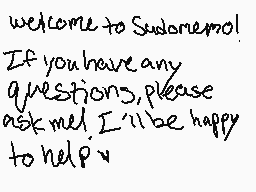 welcome to Sudomemo!
If you have any
questions, please
ask me! I'll be happy
to help